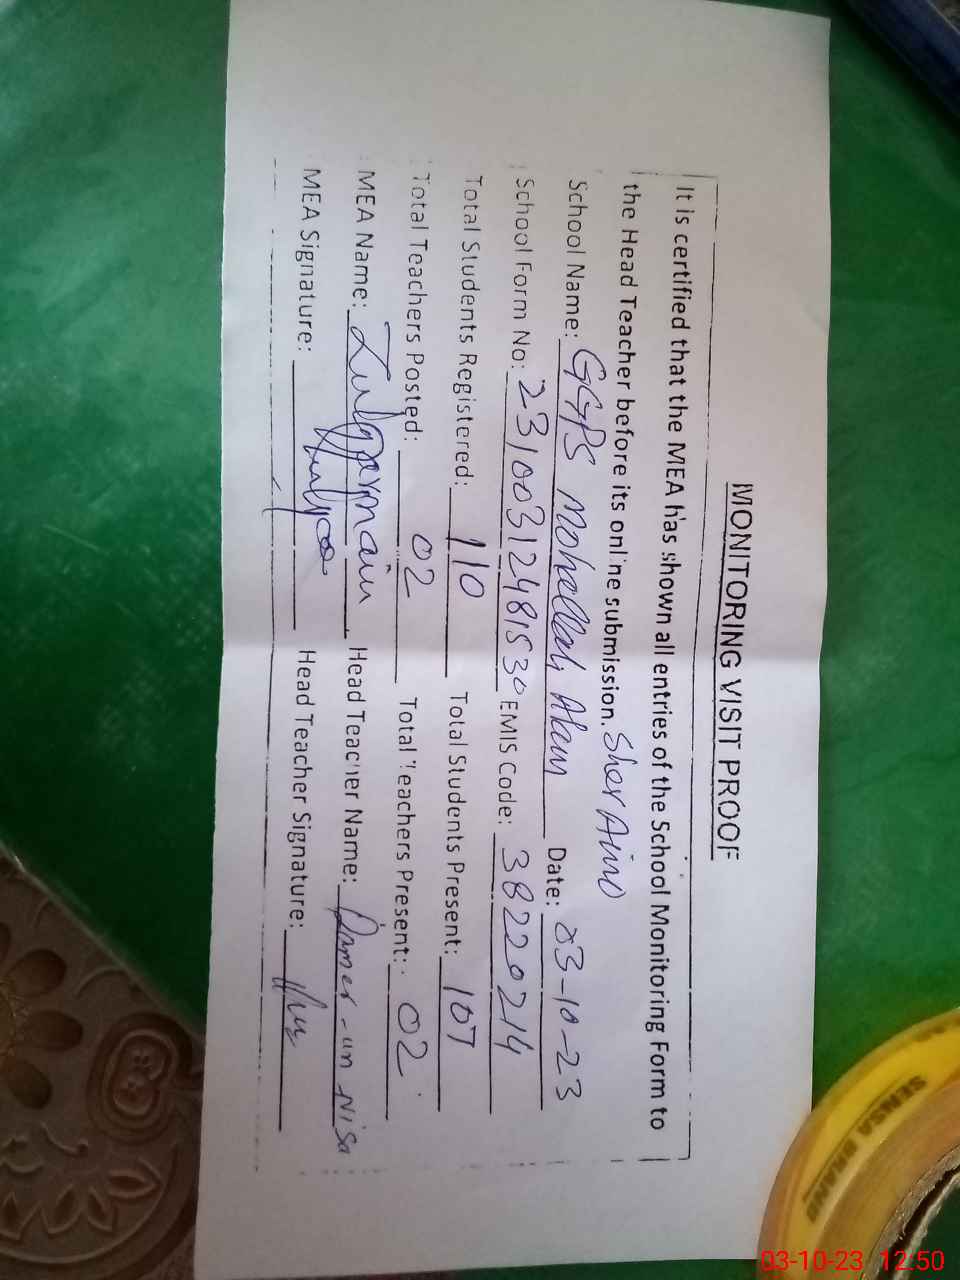 MONITORING VISIT PROOF
It is certified that the MEA has shown all entries of the School Monitoring Form to
the Head Teacher before its online submission. Sher Aino
School Name: GGPS Mohallah Alam Date: 03-10-23
School Form No: 23100312481530 EMIS Code: 38220214
Total Students Registered: 110 Total Students Present: 107
Total Teachers Posted: 02 Total Teachers Present: 02
MEA Name: Zulqarnain Head Teacher Name: Qamer-un Nisa
MEA Signature: Head Teacher Signature:
SENSA BRAND
03-10-23 12:50